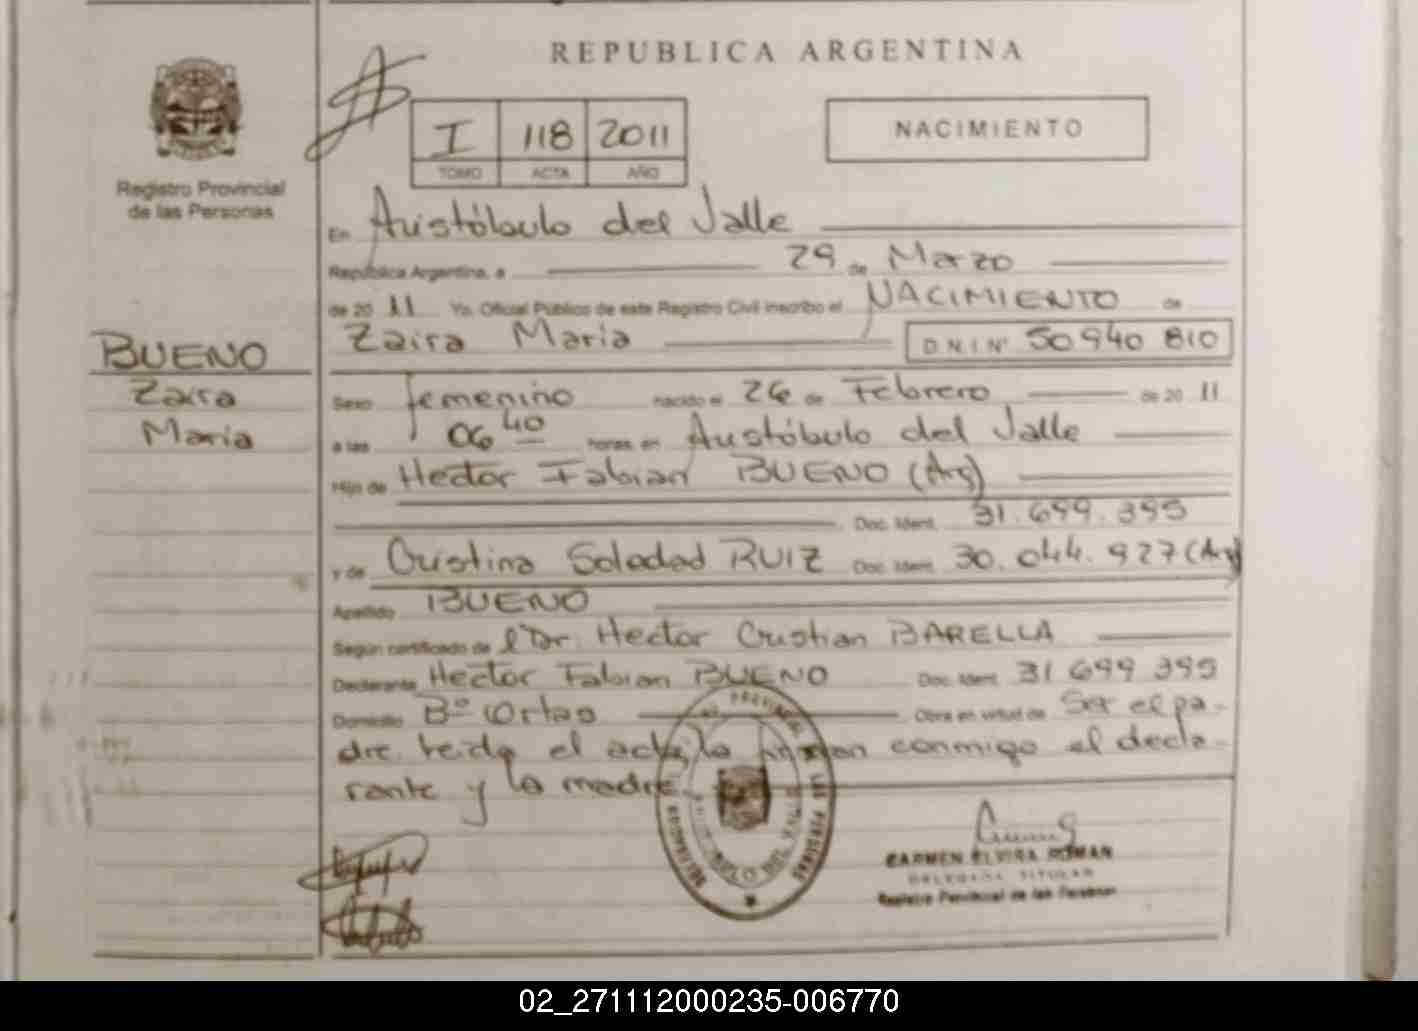 REPUBLICA ARGENTINA
I 118 2011
TOMO ACTA AÑO
NACIMIENTO
Registro Provincial
de las Personas
BUENO
Zaira
Maria
En Aristóbulo del Valle
República Argentina, a 29 de Marzo
de 2011 Yo, Oficial Público de este Registro Civil inscribo el NACIMIENTO de
Zaira Maria D.N.I Nº 50 940 810
Sexo femenino nacido el 26 de Febrero de 2011
a las 06 40 horas en Aristóbulo del Valle
Hijo de Hector Fabian BUENO (Arg)
Doc. Ident. 31.699.395
y de Cristina Soledad RUIZ Doc. Ident. 30.044.927 (Arg)
Apellido BUENO
Según certificado de el Dr. Hector Cristian BARELLA
Declarante Hector Fabian BUENO Doc. Ident. 31 699 395
Domicilio Bº Ortas Obra en virtud de Ser el pa-
dre. leida el acta, la firman conmigo el decla-
rante y la madre
CARMEN ELVIRA ROMAN
DELEGADA TITULAR
Registro Provincial de las Personas
02_271112000235-006770